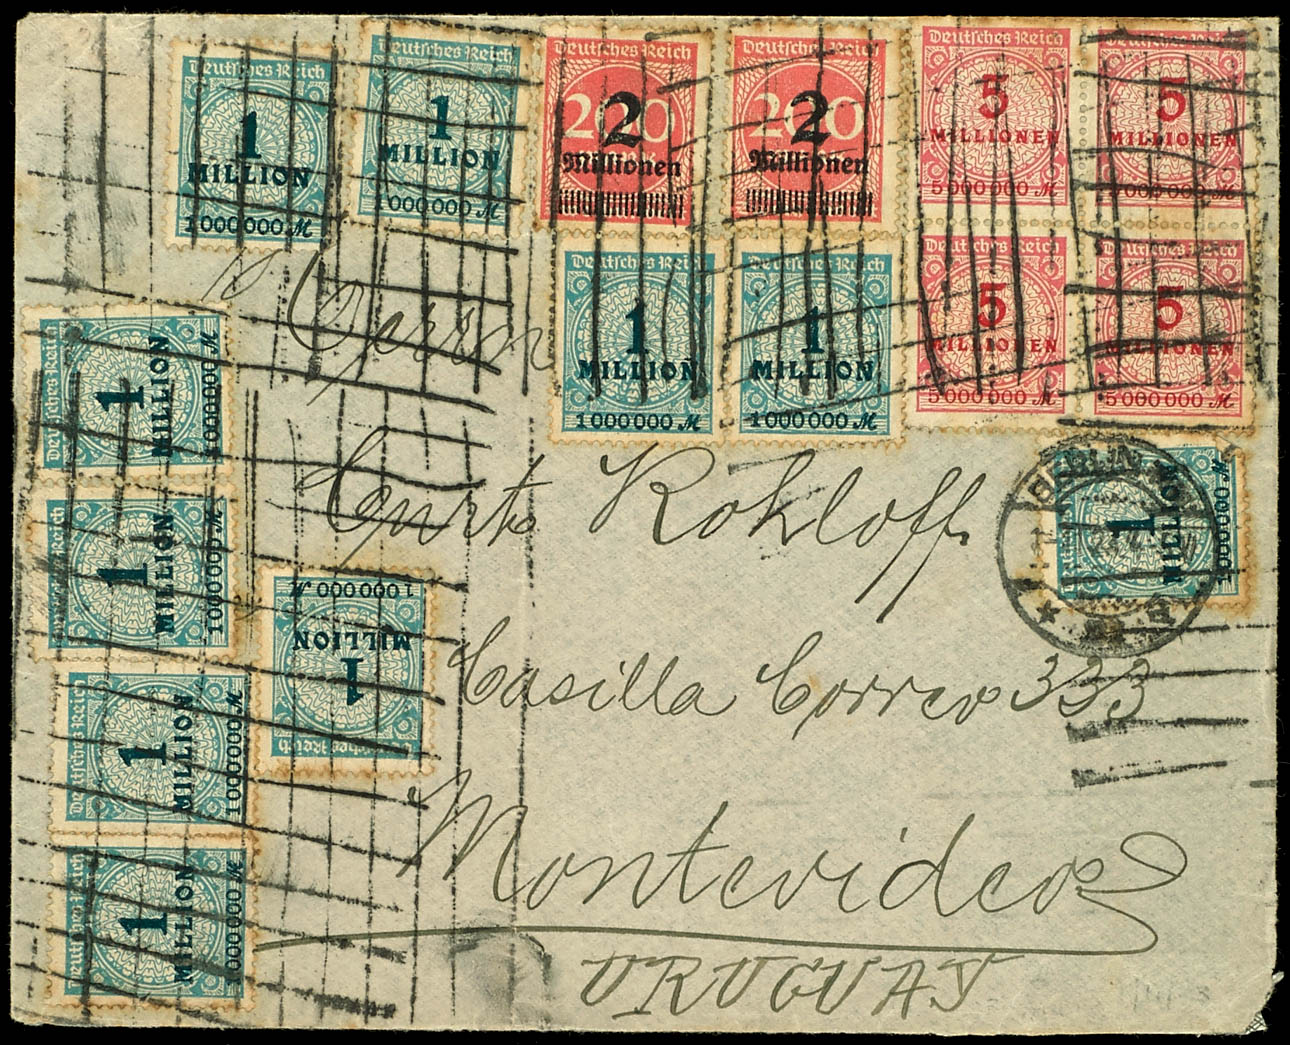 Deutsches Reich
1
MILLION
1000000 M
Deutsches Reich
1
MILLION
1000000 M
Deutsches Reich
200
2
Millionen
Deutsches Reich
200
2
Millionen
Deutsches Reich
5
MILLIONEN
5000000 M
Deutsches Reich
5
MILLIONEN
5000000 M
Deutsches Reich
1
MILLION
1000000 M
Deutsches Reich
1
MILLION
1000000 M
Deutsches Reich
5
MILLIONEN
5000000 M
Deutsches Reich
5
MILLIONEN
5000000 M
Herrn
Deutsches Reich
1
MILLION
1000000 M
Curt Rohloff
BERLIN
1
MILLION
1000000 M
Deutsches Reich
1
MILLION
1000000 M
Deutsches Reich
1
MILLION
1000000 M
Casilla Correo 333
Deutsches Reich
1
MILLION
1000000 M
Montevideo
Deutsches Reich
1
MILLION
1000000 M
URUGUAY